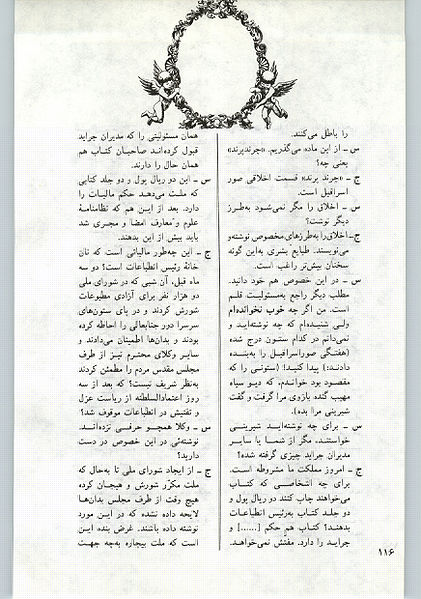 را باطل می‌کنند.
س ـ از این ماده می‌گذریم. «چرندپرند»
یعنی چه؟
ج ـ «چرند پرند» قسمت اخلاقی صور
اسرافیل است.
س ـ اخلاق را مگر نمی‌شود به‌طرز
دیگر نوشت؟
ج ـ اخلاق را به‌طرزهای مخصوص نوشته‌و
می‌نویسند. طبایع بشری به‌این گونه
سخنان بیش‌تر راغب است.
س ـ در این خصوص هم خود دانید.
مطلب دیگر راجع به‌مسئولیت قلم
است. من اگر چه خوب نخوانده‌ام
ولی شنیده‌ام که چه نوشته‌اید و
نمی‌دانم در کدام ستون درج شده
(هفتگی صوراسرافیل را به‌بنده
دادند:) پیدا کنید! (ستونی را که
مقصود بود خواندم، که دیو سیاه
مهیب گنده بازوی مرا گرفت و گفت
شیرینی مرا بده).
س ـ برای چه نوشته‌اید شیرینی
خواستند، مگر از شما یا سایر
مدیران جراید چیزی گرفته شده؟
ج ـ امروز مملکت ما مشروطه است.
برای چه اشخاصی که کتاب
می‌خواهند چاپ کنند دو ریال پول و
دو جلد کتاب به‌رئیس انطباعات
بدهند؟ کتاب هم حکم [......] و
جراید را دارد. مفتّش نمی‌خواهد.
همان مسئولیتی را که مدیران جراید
قبول کرده‌اند صاحبان کتاب هم
همان حال را دارند.
س ـ این دو ریال پول و دو جلد کتابی
که ملت می‌دهد حکم مالیات را
دارد. بعد از این هم که نظامنامهٔ
علوم و معارف امضا و مجری شد
باید بیش از این بدهند.
ج ـ این چه‌طور مالیاتی است که نان
خانهٔ رئیس انطباعات است؟ دو سه
ماه قبل، آن شبی که در شورای ملی
دو هزار نفر برای آزادی مطبوعات
شورش کردند و در پای ستون‌های
سرسرا دور جنابعالی را احاطه کرده
بودند و بدان‌ها اطمینان می‌دادند و
سایر وکلای محترم نیز از طرف
مجلس مقدس مردم را مطمئن کردند
به‌نظر شریف نیست؟ که بعد از سه
روز اعتمادالسلطنه از ریاست عزل
و تفتیش در انطباعات موقوف شد؟
س ـ وکلا همچو حرفی نزده‌اند.
نوشته‌ئی در این خصوص در دست
دارید؟
ج ـ از ایجاد شورای ملی تا به‌حال که
ملت مکرّر شورش و هیجان کرده
هیچ وقت از طرف مجلس بدان‌ها
لایحه داده نشده که در این مورد
نوشته داده باشند. غرض بنده این
است که ملت بیچاره به‌چه جهت
۱۱۶